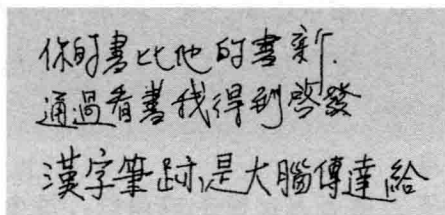 你的書比他的書新.
通過看書我得到啓發
漢字筆跡是大腦傳達給